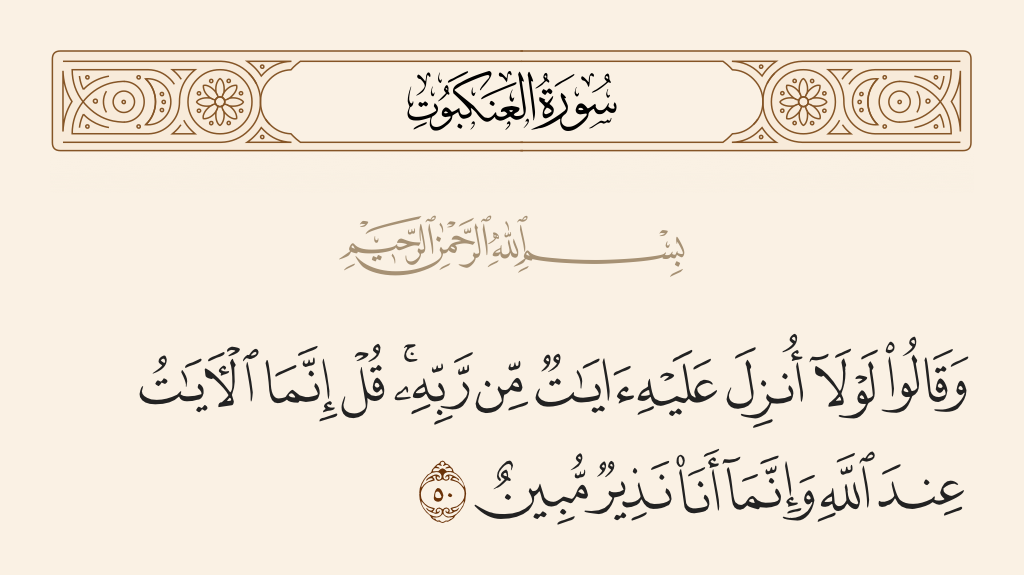 سُورَةُ الْعَنكَبُوتِ
بِسْمِ ٱللَّهِ ٱلرَّحْمَٰنِ ٱلرَّحِيمِ
وَقَالُوا۟ لَوْلَآ أُنزِلَ عَلَيْهِ ءَايَٰتٌ مِّن رَّبِّهِۦ ۖ قُلْ إِنَّمَا ٱلْءَايَٰتُ
عِندَ ٱللَّهِ وَإِنَّمَآ أَنَا۠ نَذِيرٌ مُّبِينٌ ٥٠